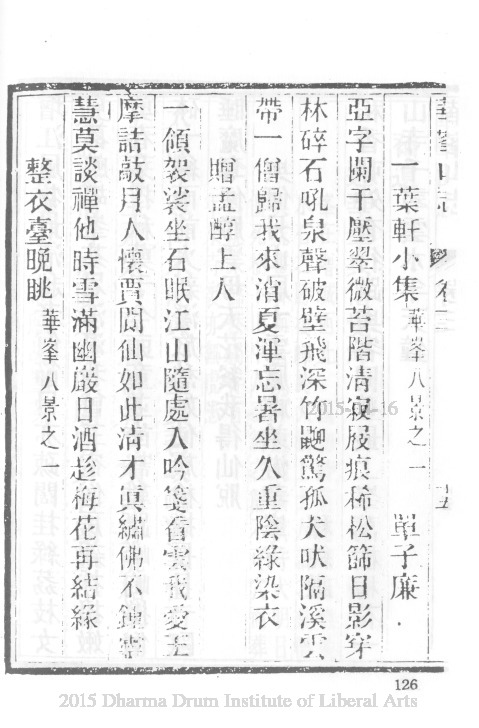 華峯山志 卷三 十五
一葉軒小集 華峯八景之一 單子廉
亞字闌干壓翠微苔階清寂屐痕稀松篩日影穿
林碎石吼泉聲破壁飛深竹鼯驚孤犬吠隔溪雲
帶一僧歸我來消夏渾忘暑坐久重陰綠染衣
贈孟醇上人
一領袈裟坐石眠江山隨處入吟箋看雲我愛王
摩詰敲月人懷賈閬仙如此清才眞繡佛不鍾靈
慧莫談禪他時雪滿幽巖日酒趁梅花再結緣
整衣臺晚眺 華峯八景之一
2015-
-16
126
2015 Dharma Drum Institute of Liberal Arts